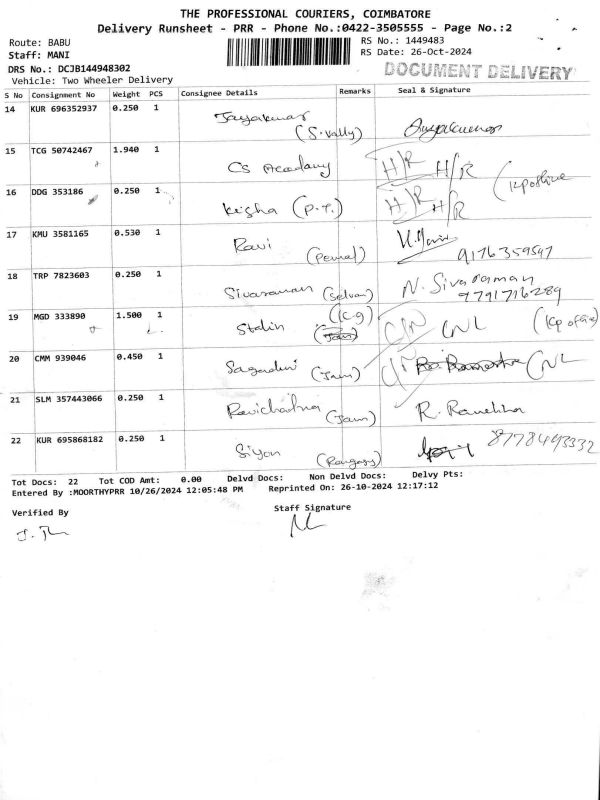 THE PROFESSIONAL COURIERS, COIMBATORE
Delivery Runsheet - PRR - Phone No.:0422-3505555 - Page No.:2
Route: BABU
RS No.: 1449483
Staff: MANI
RS Date: 26-Oct-2024
DRS No.: DCJB144948302
DOCUMENT DELIVERY
Vehicle: Two Wheeler Delivery
S No Consignment No Weight PCS Consignee Details Remarks Seal & Signature
14 KUR 696352937 0.250 1 Jayakumar (S.Vally)
15 TCG 50742467 1.940 1 CS Academy H/R H/R
16 DDG 353186 0.250 1 Keisha (P.T.) H/R H/R
17 KMU 3581165 0.530 1 Ravi (Permal) 9176359547
18 TRP 7823603 0.250 1 Sivaraman (Selvan) N. Sivaraman
9791716289
19 MGD 333890 1.500 1 Stalin (K.G) (Jam) C/N CNL (Kp office)
20 CMM 939046 0.450 1 (Jam) CNL
21 SLM 357443066 0.250 1 (Jam)
22 KUR 695868182 0.250 1 Siyon 8778493332
Tot Docs: 22 Tot COD Amt: 0.00 Delvd Docs: Non Delvd Docs: Delvy Pts:
Entered By :MOORTHYPRR 10/26/2024 12:05:48 PM Reprinted On: 26-10-2024 12:17:12
Verified By
Staff Signature